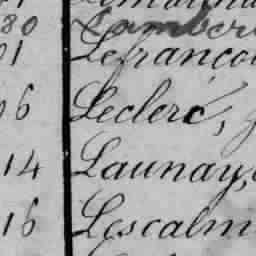 80 Lamber
01 Lefranço
06 Leclerc, J
14 Launay,
16 Lescalm